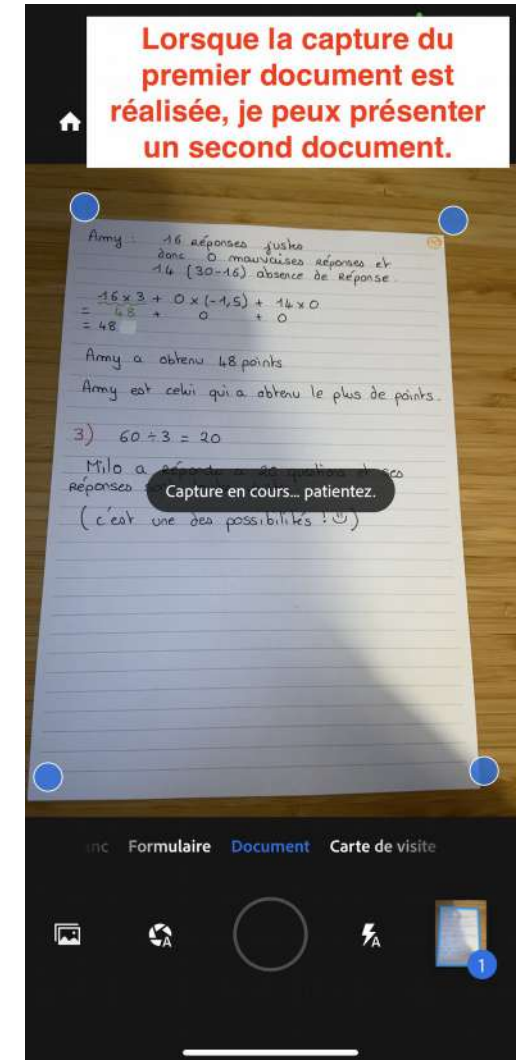 Lorsque la capture du
premier document est
réalisée, je peux présenter
un second document.
Amy : 16 réponses justes
donc 0 mauvaises réponses et
14 (30-16) absence de Réponse.
16 x 3 + 0 x (-1,5) + 14 x 0
= 48 + 0 + 0
= 48
Amy a obtenu 48 points
Amy est celui qui a obtenu le plus de points.
3) 60 ÷ 3 = 20
Milo a répondu à 20 questions et ses
Réponses
Capture en cours... patientez.
(c'est une des possibilités ! )
Formulaire Document Carte de visite
A A
1